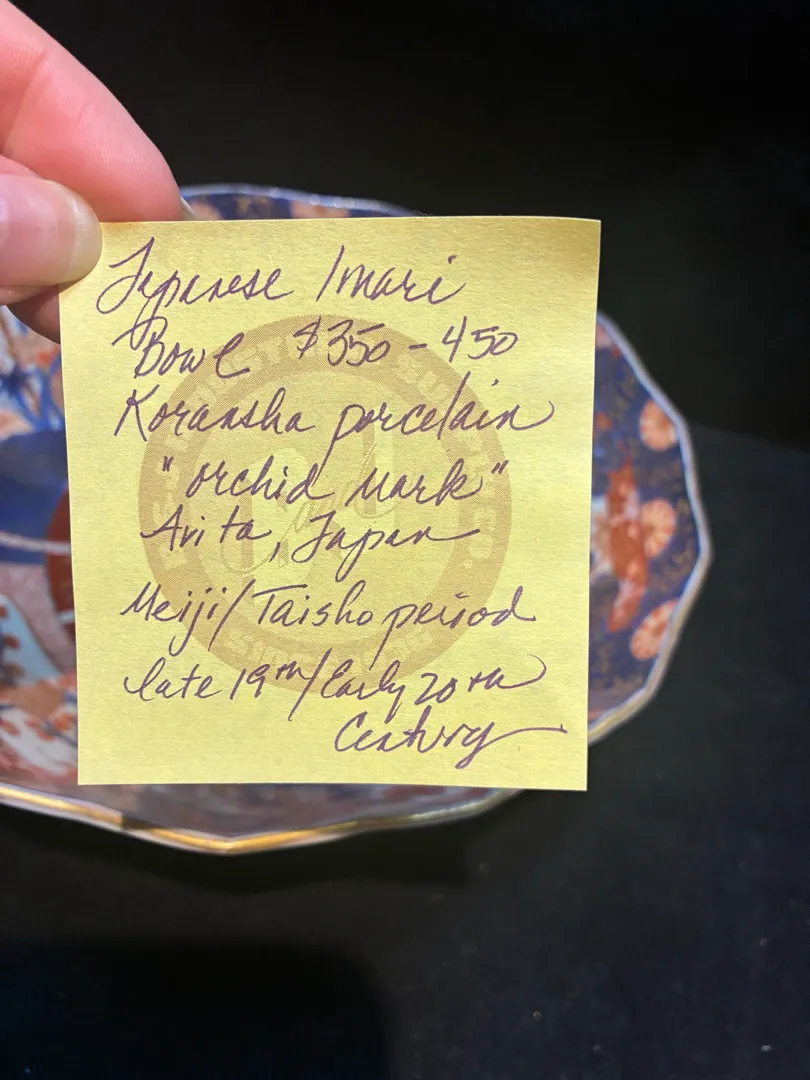 Japanese Imari
Bowl $350-450
Koransha porcelain
"orchid mark"
Arita, Japan
Meiji/Taisho period
late 19th/Early 20th
Century